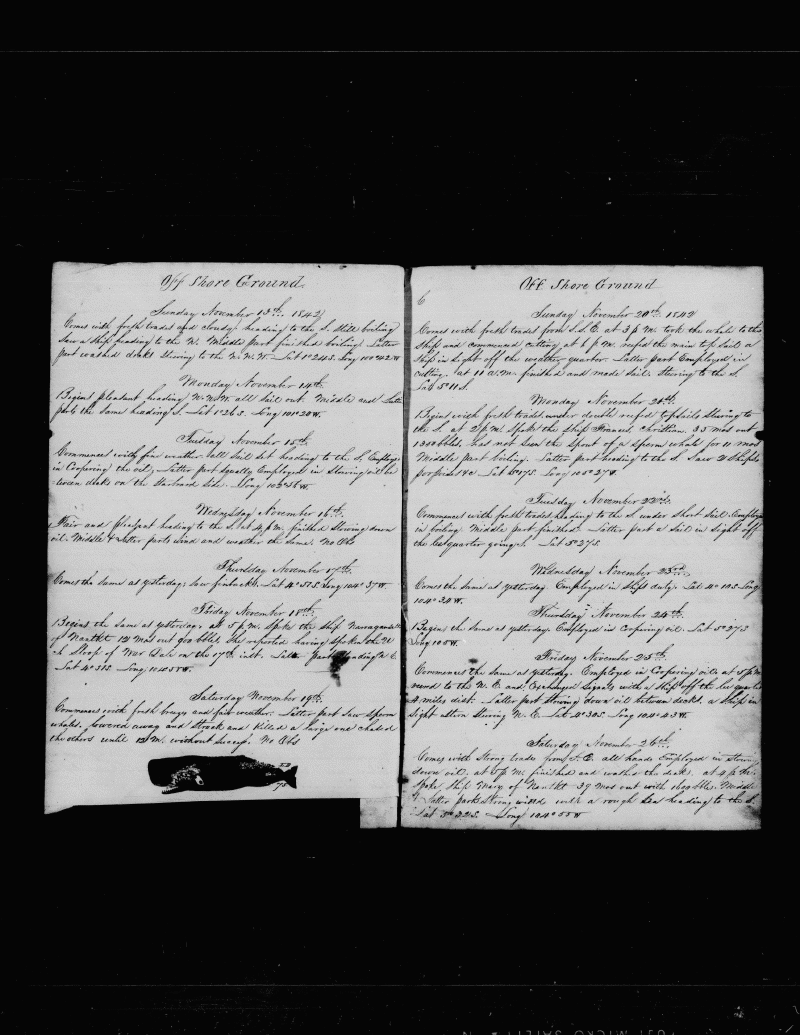 Off Shore Ground.
Sunday November 13th. 1842
Comes with fresh trades and cloudy heading to the S. Still boiling
Saw a ship heading to the N. Middle part finished boiling. Latter
part washed decks Steering to the W.N.W. Lat 1°24S. Long 100°42W
Monday November 14th.
Begins pleasant heading W.N.W. all sail out. Middle and Latter
parts the same heading S. Lat 1°26S. Long 101°20W.
Tuesday November 15th.
Commences with fine weather all sail set heading to the S. Employed
in Coopering the oil, Latter part equally Employed in Stowing oil be
tween decks on the Starbord side. Long 102°
Wednesday November 16th.
Fair and pleasant heading to the S. at 4 P.M. finished Stowing down
oil. Middle & latter parts wind and weather the same. No Obs
Thursday November 17th.
Comes the same as yesterday; saw finbacks. Lat 4°51S. Long 104°37W.
Friday November 18th.
Begins the same as yesterday. at 5 p.m. Spoke the Ship Narragansett
of Nantkt 12 Mos out 900 bbls. She reported having spoken the U
S. Sloop of War Dale on the 17th inst. Latter part heading N.E.
Lat 4°31S. Long 104°58W.
Saturday November 19th.
Commences with fresh breezes and fair weather. Latter part Saw Sperm
whales. lowered away and Struck and killed a large one chased
the others until 12 M. without success. No Obs
Off Shore Ground
6
Sunday November 20th. 1842
Comes with fresh trades from S.S.E. at 3 p.m. took the whale to the
Ship and commenced cutting at 6 p.m. reefed the main top sail a
ship in sight off the weather quarter. Latter part Employed in
cutting. at 11 a.m. finished and made sail. Steering to the S.
Lat 5°11S.
Monday November 21st.
Begins with fresh trades under double reefed topsails Steering to
the S. at 2 p.m. Spoke the Ship Francis, Christian. 35 mos out
1300 bbls. has not seen the Spout of a sperm whale for 11 mos
Middle Part boiling. Latter part heading to the S. Saw 2 Ships
porpoises &c Lat 5°17S. Long 105°27W.
Tuesday November 22nd.
Commences with fresh trades heading to the S. under Short Sail. Employed
in boiling. Middle part finished. Latter part a sail in sight off
the lee quarter going S. Lat 5°27S.
Wednesday November 23rd.
Comes the same as yesterday. Employed in Ship duty. Lat 4°10S Long
104°34W.
Thursday November 24th.
Begins the same as yesterday Employed in Coopering oil. Lat 5°27S
Long 105W.
Friday November 25th.
Commences the same as yesterday. Employed in Coopering oil. at 5 p.m
wore to the N.E. and Exchanged Signals with a Ship off the lee quarter
4 miles dist. Latter part Stowing down oil between decks. a Ship in
sight astern Steering N.E. Lat 4°30S. Long 104°43W.
Saturday November 26th.
Comes with Strong trades from S.E. all hands Employed in stowing
down oil. at 3 p.m. finished and washed the decks. at 4 p.m.
Spoke Ship Mary of Nantkt 39 mos out with 1600 bbls. Middle
& Latter parts Strong winds with a rough Sea heading to the S.
Lat 5°32S. Long 104°55W